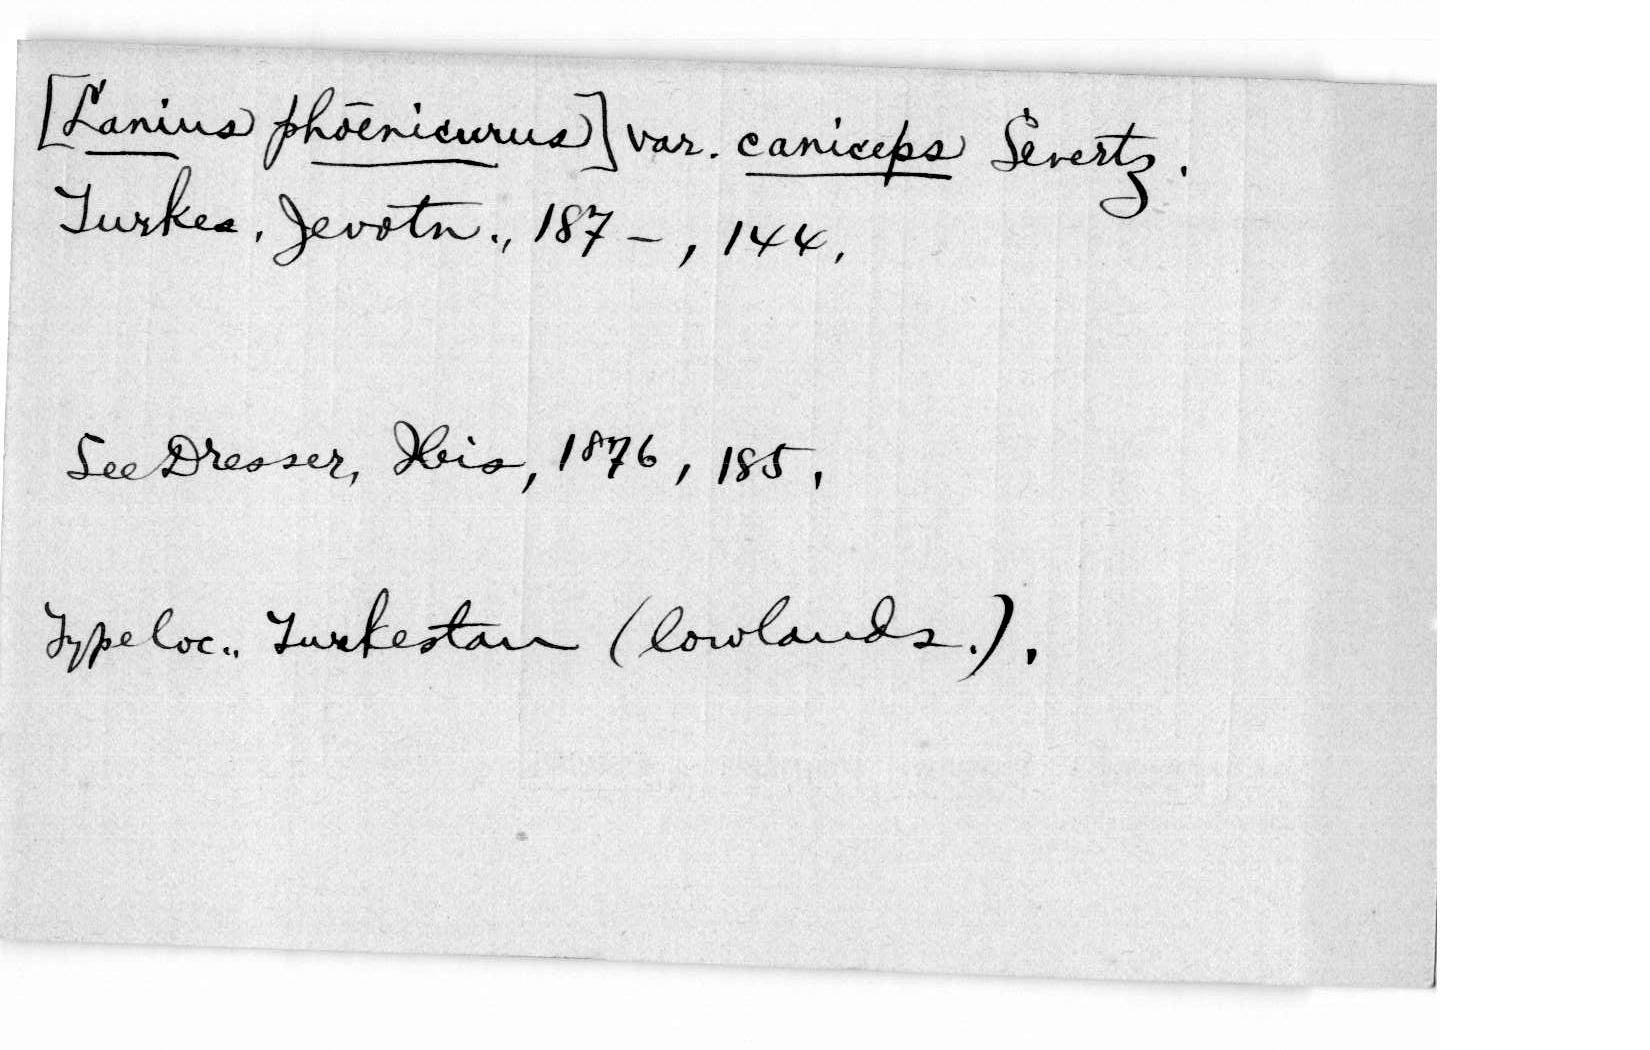 [Lanius phoenicurus] var. caniceps Severtz.
Turkes, Jevotn., 187-, 144.
See Dresser, Ibis, 1876, 185.
Type loc., Turkestan (lowlands.).